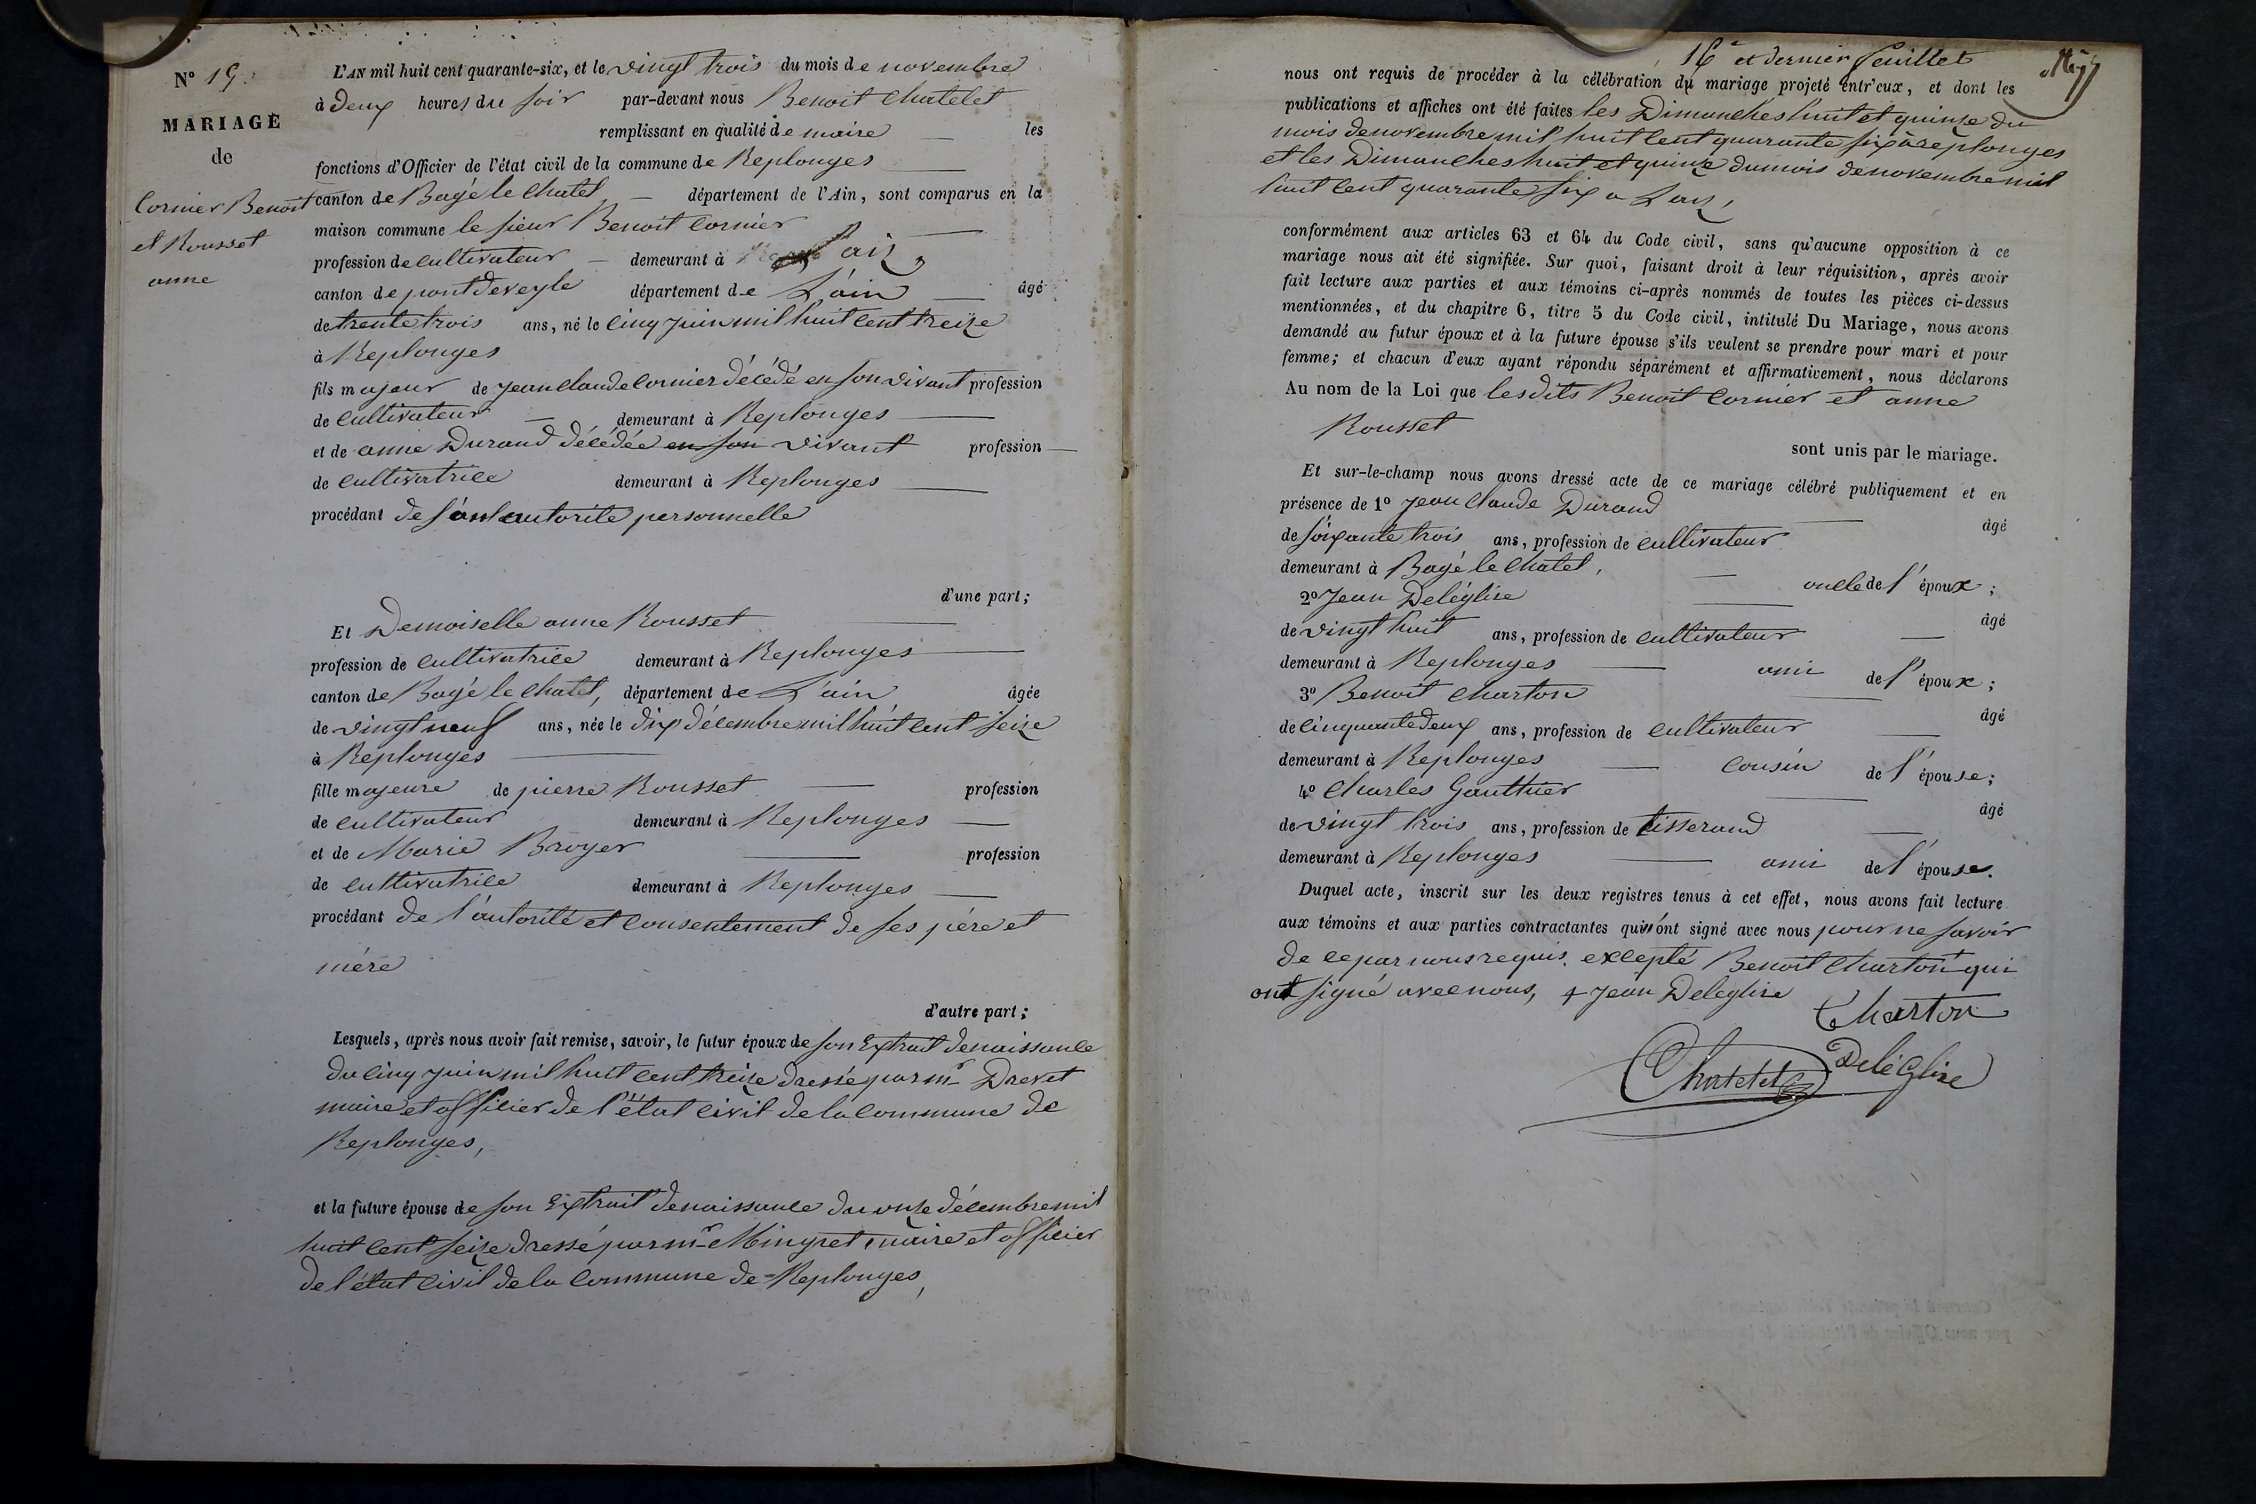 Nº 19.
MARIAGE
de
Cornier Benoit
et Rousset
anne
L'AN mil huit cent quarante-six, et le vingt trois du mois de novembre
à deux heures du soir par-devant nous Benoit Chatelet
remplissant en qualité de maire les
fonctions d'Officier de l'état civil de la commune de Replonges
canton de Bagé le Chatel département de l'Ain, sont comparus en la
maison commune le sieur Benoit Cornier
profession de cultivateur demeurant à Laiz,
canton de pont de veyle département de L'ain âgé
de trente trois ans, né le cinq juin mil huit cent treize
à Replonges
fils majeur de jean Claude Cornier décédé en son vivant profession
de cultivateur demeurant à Replonges
et de anne Durand décédée en son vivant profession
de cultivatrice demeurant à Replonges
procédant de son autorité personnelle
d'une part;
Et Demoiselle anne Rousset
profession de cultivatrice demeurant à Replonges
canton de Bagé le Chatel, département de L'ain âgée
de vingt neuf ans, née le dix décembre mil huit cent seize
à Replonges
fille majeure de pierre Rousset profession
de cultivateur demeurant à Replonges
et de Marie Broyer profession
de cultivatrice demeurant à Replonges
procédant de l'autorité et consentement de ses père et
mère
d'autre part;
Lesquels, après nous avoir fait remise, savoir, le futur époux de son Extrait de naissance
du cinq juin mil huit cent treize dressé par mr Drevet
maire et officier de l'état civil de la commune de
Replonges,
et la future épouse de son Extrait de naissance du onze décembre mil
huit cent seize dressé par mr Mingret maire et officier
de l'état civil de la commune de Replonges,
16e et dernier feuillet
nous ont requis de procéder à la célébration du mariage projeté entr'eux, et dont les
publications et affiches ont été faites les Dimanches huit et quinze du
mois de novembre mil huit cent quarante six à replonges
et les Dimanches huit et quinze du mois de novembre mil
huit cent quarante six a Laiz,
conformément aux articles 63 et 64 du Code civil, sans qu'aucune opposition à ce
mariage nous ait été signifiée. Sur quoi, faisant droit à leur réquisition, après avoir
fait lecture aux parties et aux témoins ci-après nommés de toutes les pièces ci-dessus
mentionnées, et du chapitre 6, titre 5 du Code civil, intitulé Du Mariage, nous avons
demandé au futur époux et à la future épouse s'ils veulent se prendre pour mari et pour
femme; et chacun d'eux ayant répondu séparément et affirmativement, nous déclarons
Au nom de la Loi que lesdits Benoit Cornier et anne
Rousset
sont unis par le mariage.
Et sur-le-champ nous avons dressé acte de ce mariage célébré publiquement et en
présence de 1º jean Claude Durand
âgé
de soixante trois ans, profession de cultivateur
demeurant à Bagé le Chatel, oncle de l'époux;
2º Jean Deléglise
âgé
de vingt huit ans, profession de cultivateur
demeurant à Replonges ami de l'époux;
3º Benoit Charton
âgé
de cinquante deux ans, profession de cultivateur
demeurant à Replonges cousin de l'épouse;
4º Charles Gauthier
âgé
de vingt trois ans, profession de tisserand
demeurant à Replonges ami de l'épouse.
Duquel acte, inscrit sur les deux registres tenus à cet effet, nous avons fait lecture
aux témoins et aux parties contractantes qui n'ont signé avec nous pour ne savoir
de ce par nous requis. excepté Benoit Charton qui
ont signé avec nous, + Jean Deleglise
Charton
Chatelet
Deléglise